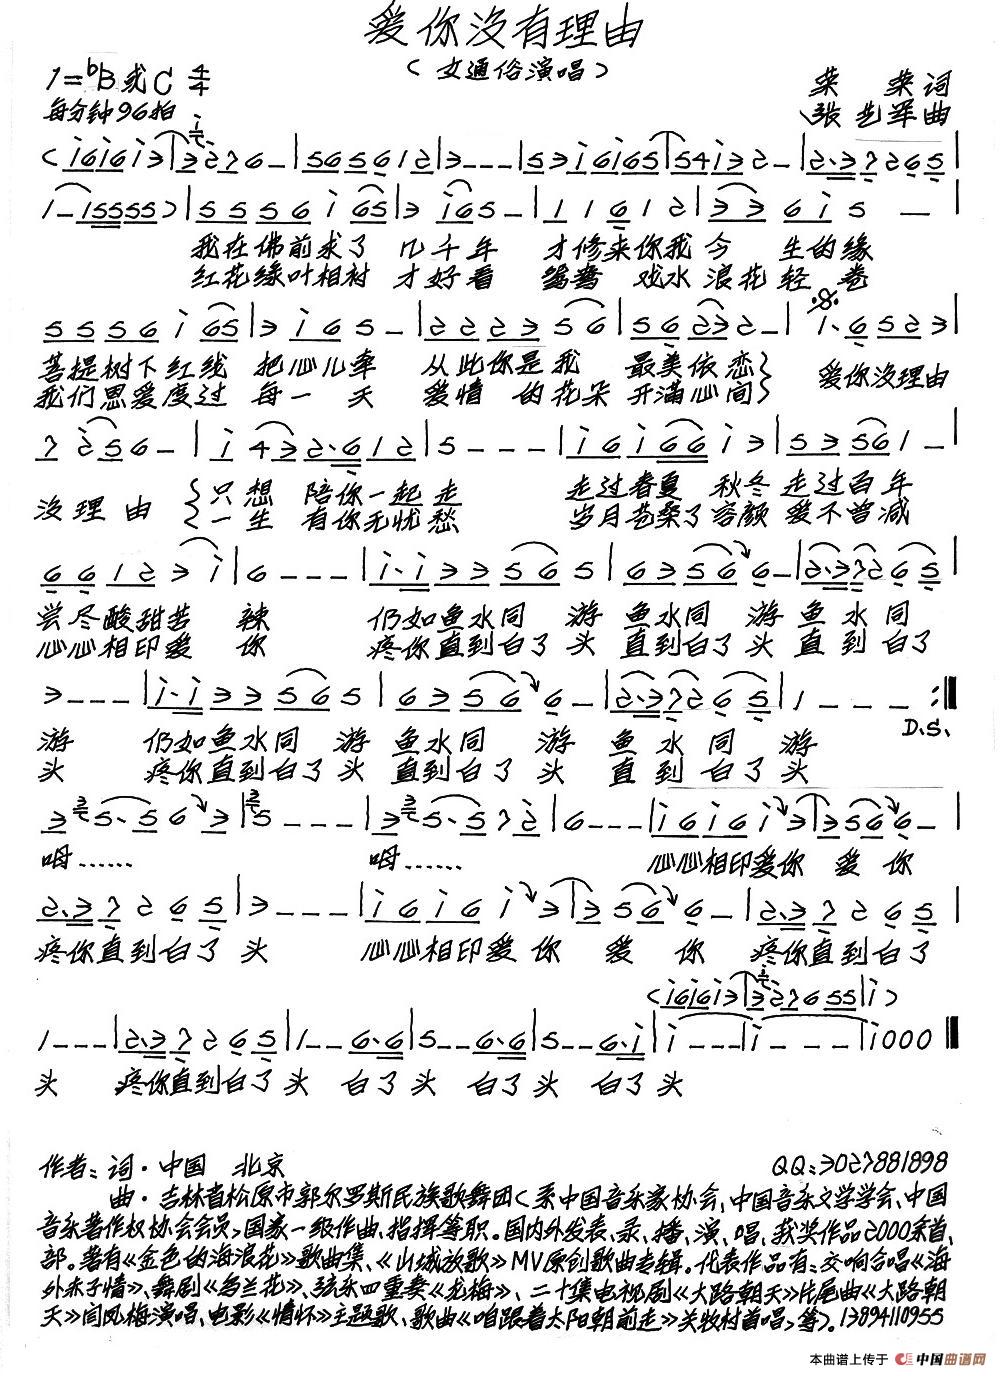 爱你没有理由
(女通俗演唱)
1=♭B或C 4/4
荣 荣 词
每分钟96拍
张艺军 曲
我在佛前求了 几千年 才修来你我今 生的缘
红花绿叶相衬 才好看 鸳鸯 戏水 浪花轻 卷
菩提树下红线 把心儿牵 从此你是我 最美依恋 爱你没理由
我们恩爱度过 每一 天 爱情 的花朵 开满心间
没理由 只想 陪你一起走 走过春夏 秋冬走过百年
一生 有你无忧愁 岁月苍桑了容颜 爱不曾减
尝尽酸甜苦 辣 仍如鱼水同 游 鱼水同 游 鱼 水 同
心心相印爱 你 疼你直到白了 头 直到白了 头 直到 白了
游 仍如鱼水同 游 鱼水同 游 鱼 水 同 游
D.S.
头 疼你直到白了 头 直到白了 头 直到 白了 头
呣…… 呣…… 心心相印爱你 爱 你
疼你直到白了 头 心心相印爱 你 爱 你 疼你直到白了
头 疼你直到白了 头 白了 头 白了 头 白了 头
作者:词·中国 北京
QQ:3027881898
曲·吉林省松原市郭尔罗斯民族歌舞团(系中国音乐家协会、中国音乐文学学会、中国
音乐著作权协会会员)国家一级作曲、指挥等职。国内外发表、录、播、演、唱、获奖作品2000余首、
部。著有《金色的海浪花》歌曲集、《山城放歌》MV原创歌曲专辑。代表作品有:交响合唱《海
外赤子情》、舞剧《乌兰花》、弦乐四重奏《龙梅》、二十集电视剧《大路朝天》片尾曲《大路朝
天》闫凤梅演唱、电影《情怀》主题歌、歌曲《咱跟着太阳朝前走》关牧村首唱,等)。13894110955
本曲谱上传于 中国曲谱网